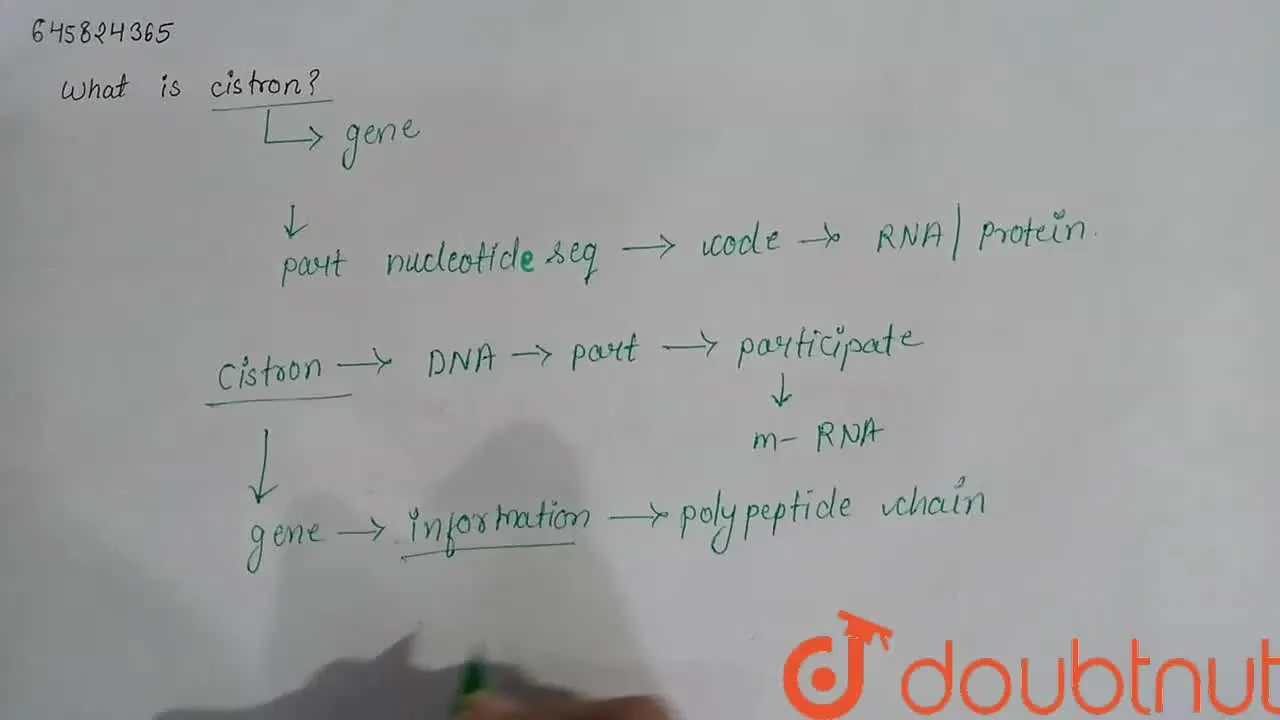 645824365
What is cistron?
gene
part nucleotide seq → code → RNA/protein.
Cistron → DNA → part → participate
m-RNA
gene → information → polypeptide chain
doubtnut